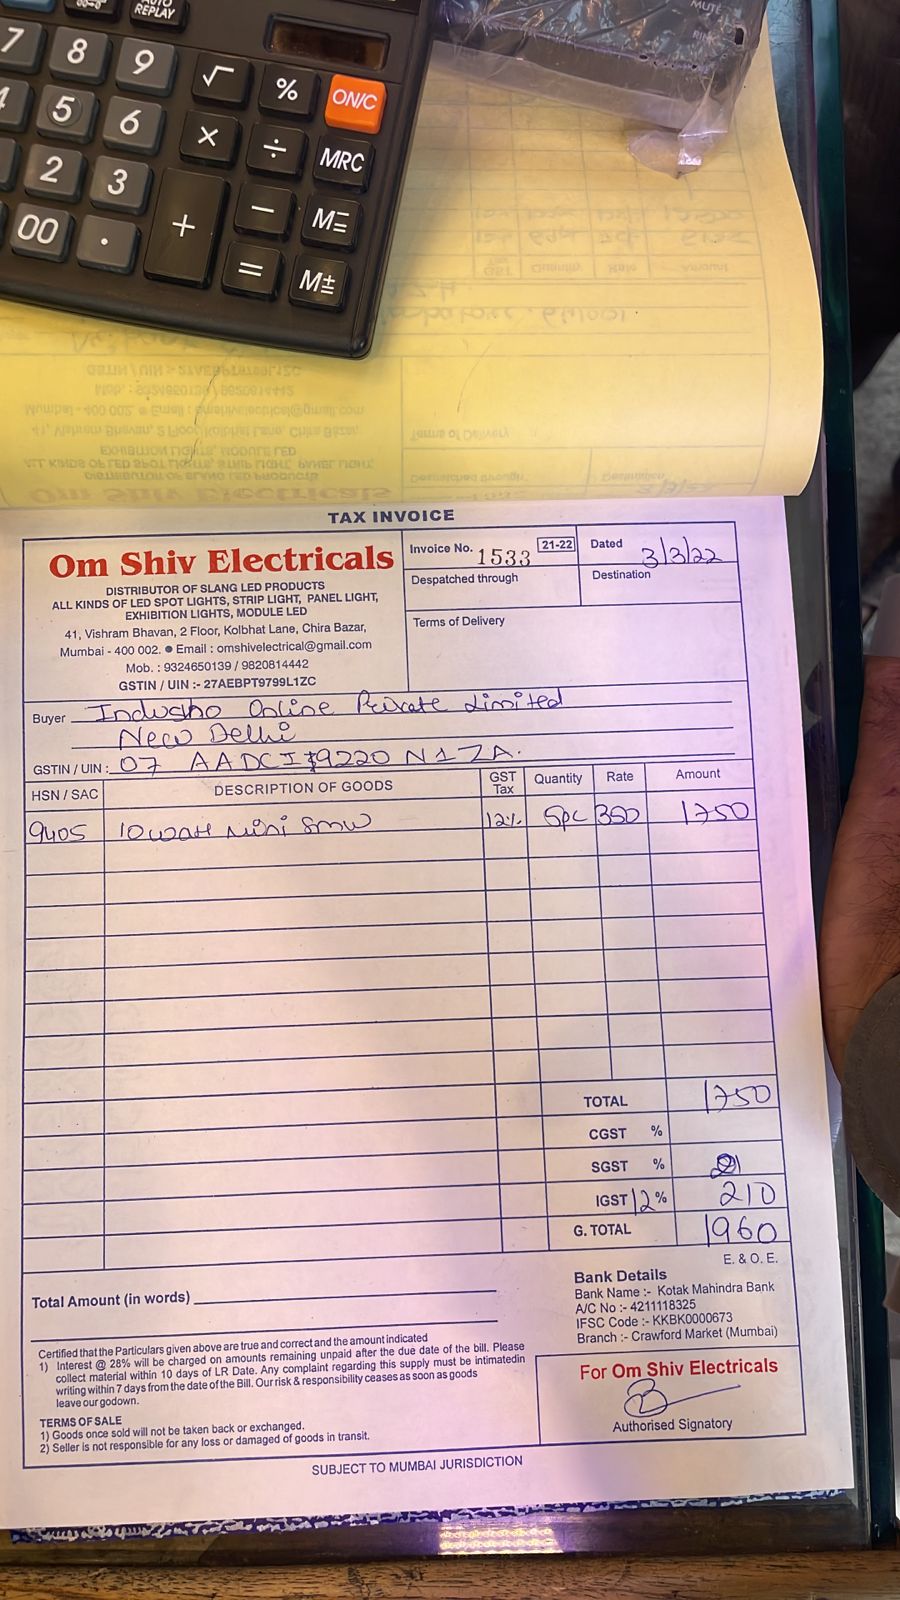 AUTO REPLAY
MUTE
7 8 9 √ % ON/C
4 5 6 × ÷ MRC
2 3 + − M=
00 . = M±
TAX INVOICE
Om Shiv Electricals
DISTRIBUTOR OF SLANG LED PRODUCTS
ALL KINDS OF LED SPOT LIGHTS, STRIP LIGHT, PANEL LIGHT,
EXHIBITION LIGHTS, MODULE LED
41, Vishram Bhavan, 2 Floor, Kolbhat Lane, Chira Bazar,
Mumbai - 400 002. ● Email : omshivelectrical@gmail.com
Mob. : 9324650139 / 9820814442
GSTIN / UIN :- 27AEBPT9799L1ZC
Invoice No. 1533 21-22 Dated 3/3/22
Despatched through Destination
Terms of Delivery
Buyer Online Private Limited
New Delhi
GSTIN / UIN : 07
HSN / SAC DESCRIPTION OF GOODS GST Tax Quantity Rate Amount
9405 10 watt Mini 12% 5pc 350 1750
TOTAL 1750
CGST %
SGST %
IGST 12% 210
G. TOTAL 1960
E. & O. E.
Total Amount (in words)
Bank Details
Bank Name :- Kotak Mahindra Bank
A/C No :- 4211118325
IFSC Code :- KKBK0000673
Branch :- Crawford Market (Mumbai)
Certified that the Particulars given above are true and correct and the amount indicated
1) Interest @ 28% will be charged on amounts remaining unpaid after the due date of the bill. Please
collect material within 10 days of LR Date. Any complaint regarding this supply must be intimatedin
writing within 7 days from the date of the Bill. Our risk & responsibility ceases as soon as goods
leave our godown.
TERMS OF SALE
1) Goods once sold will not be taken back or exchanged.
2) Seller is not responsible for any loss or damaged of goods in transit.
For Om Shiv Electricals
Authorised Signatory
SUBJECT TO MUMBAI JURISDICTION